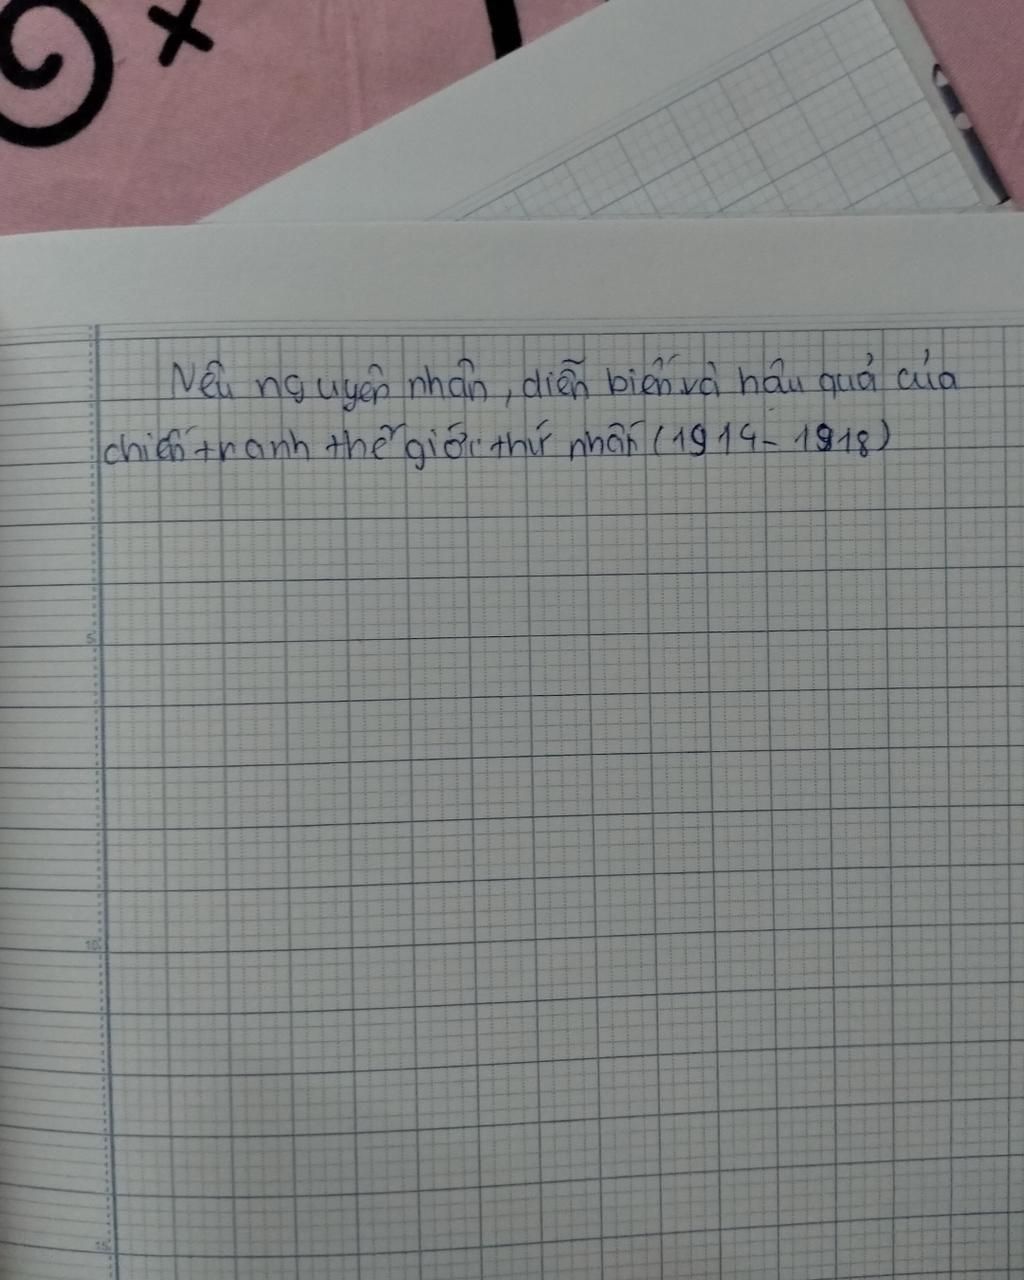 Nêu nguyên nhân, diễn biến và hâu quả của
chiến tranh thế giới thứ nhất (1914 - 1918)
5
10
15